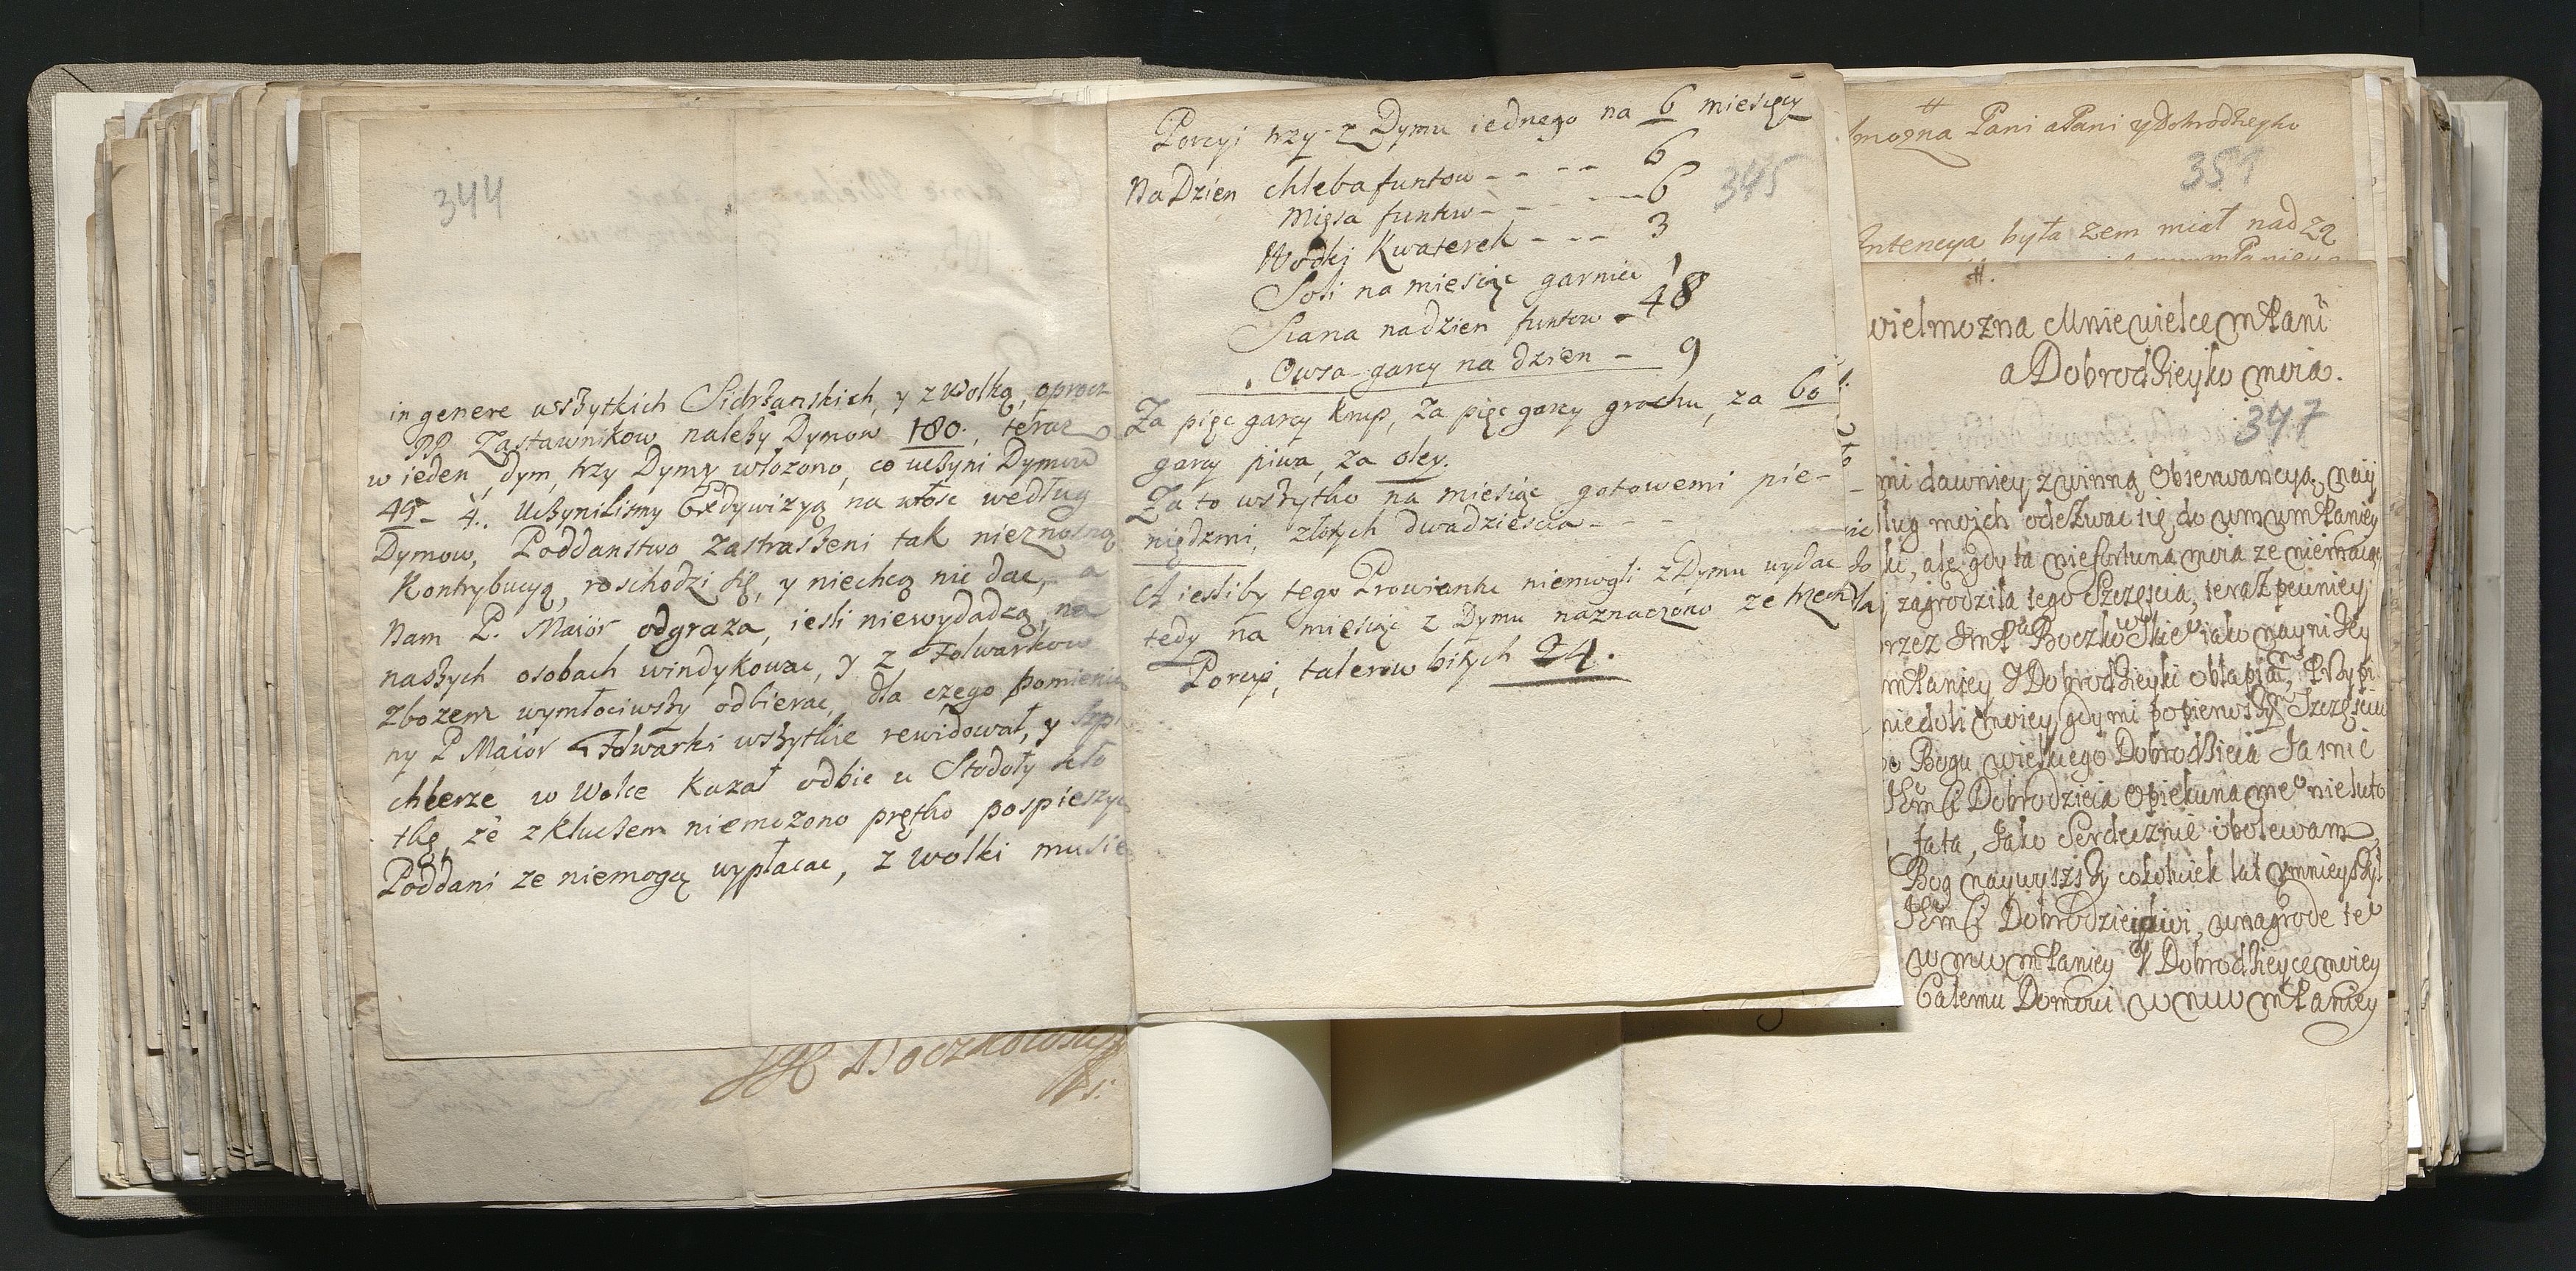 344
in genere wszytkich Sidrzanskich, y z Wolką, oprocz
PP. Zastawnikow nalezy Dymow 180., teraz
w ieden dym, trzy Dymy włozono, co uczyni Dymow
45 - 4. Uczynilismy na włosc według
Dymow, Poddanstwo zastraszeni tak nieznosną
Kontrybucyą, roschodzi się, y niechcą nic dac, a
Nam P. Maiör odgraza, iesli niewydadzą, na
naszych osobach windykowac, y z Folwarkow
zbozem wymłociwszy odbierac, dla czego pomienio
ny P Maior Folwarki wszytkie rewidował, y Szpi
chlerze w Wolce kazał odbic u Stodoły
tkę, ze z kluczem niemozono prętko pospieszyc
Poddani ze niemogą wypłacac, z Wolki musie
Porcyi trzy z Dymu iednego na 6 miesięcy
Na Dzien chleba funtow - - - - 6
345
Mięsa funtow - - - - 6
Wodki Kwaterek - - - 3
Soli na miesiąc garniec 1
Siana na dzien funtow - 48
Owsa garcy na dzien - 9
Za pięc garcy krup, za pięc garcy grochu, za 60
garcy piwa, za oley.
Za to wszytko na miesiąc gotowemi pie-
niędzmi, złotych dwadziescia - - -
A iesliby tego Prowiantu niemogli z Dymu wydac
tedy na miesiąc z Dymu naznaczono ze trzech
Porcyi, talerow bitych 24.
mozna Pani a Pani y Dobrodzieyko
351
Intencya była zem miał nadzą
wielmozna Mnie wielce mPani
a Dobrodzieyko moia.
347
mi dawniey z winną Obserwancyą, naij
ług moich odezwac się do wmwmPaniey
ku, ale gdy ta niefortuna moia ze niemaiąc
zagrodziła tego Szczęscia, teraz pewniey
rzez JmPa iako nayniszy
mPaniey y Dobrodzieyki
niedoli moiey gdy mi popierwszym Szczęsciu
po Bogu wielkiego Dobrodzieia Jasnie
Dobrodzieia Opiekuna meo nieluto
Jata, Jako Serdecznie ibolewam,
Bog naywyszszy cokolwiek lat
Dobrodzieiowi, unagrode te
wmwmPaniey y Dobrodzieyce moiey
Całemu Domowi wmwmPaniey